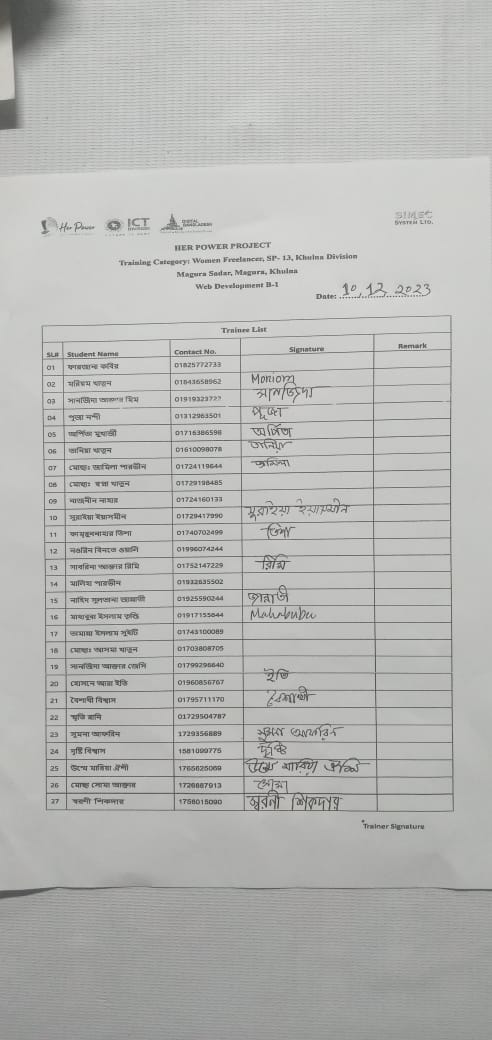 Her Power ICT DIVISION DIGITAL BANGLADESH SIMEC SYSTEM LTD.
HER POWER PROJECT
Training Category: Women Freelancer, SP- 13, Khulna Division
Magura Sadar, Magura, Khulna
Web Development B-1
Date: 10, 12 2023
Trainee List
SL# Student Name Contact No. Signature Remark
01 ফারজানা কবির 01825772733
02 মরিয়ম খাতুন 01843658962 Moriom
03 সানজিদা আক্তার মিম 01919323722 সানজিদা
04 পূজা নন্দী 01312963501 পূজা
05 অর্পিতা মুখার্জী 01716386598 অর্পিতা
06 তানিয়া খাতুন 01610098078 তানিয়া
07 মোছাঃ জামিলা পারভীন 01724119644 জামিলা
08 মোছাঃ স্বপ্না খাতুন 01729198485
09 নাজনীন নাহার 01724160133
10 সুরাইয়া ইয়াসমীন 01729417990 সুরাইয়া ইয়াসমীন
11 তিশা 01740702499 তিশা
12 নওরিন বিনতে ওয়ালি 01996074244
13 সাবরিনা আক্তার রিমি 01752147229 রিমি
14 মালিহা পারভীন 01932635502
15 নাহিদ সুলতানা জান্নাতী 01925590244 জান্নাতী
16 মাহাবুবা ইসলাম তৃপ্তি 01917155844 Mahabuba
17 ইসলাম সুইটি 01743100089
18 মোছাঃ আসমা খাতুন 01703808705
19 সানজিদা আক্তার জেসি 01799296640
20 হোসনে আরা ইতি 01960856767 ইতি
21 বৈশাখী বিশ্বাস 01795711170 বৈশাখী
22 স্মৃতি রানি 01729504787
23 সুমনা আফরিন 1729356889 সুমনা আফরিন
24 দৃষ্টি বিশ্বাস 1581099775 দৃষ্টি
25 উম্মে মারিয়া ঐশী 1765625069 উম্মে মারিয়া ঐশী
26 মোছা সোমা আক্তার 1726887913 সোমা
27 স্বরণী শিকদার 1758015090 স্বরনী শিকদার
Trainer Signature